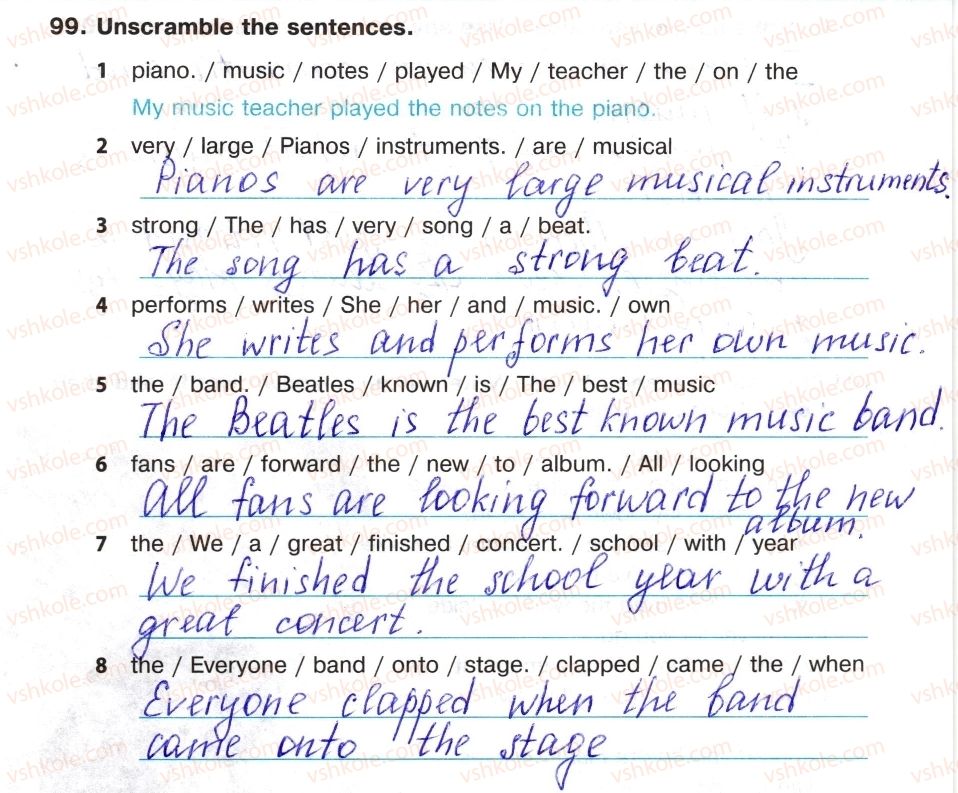 99. Unscramble the sentences.
1 piano. / music / notes / played / My / teacher / the / on / the
My music teacher played the notes on the piano.
2 very / large / Pianos / instruments. / are / musical
Pianos are very large musical instruments.
3 strong / The / has / very / song / a / beat.
The song has a strong beat.
4 performs / writes / She / her / and / music. / own
She writes and performs her own music.
5 the / band. / Beatles / known / is / The / best / music
The Beatles is the best known music band.
6 fans / are / forward / the / new / to / album. / All / looking
All fans are looking forward to the new
album.
7 the / We / a / great / finished / concert. / school / with / year
We finished the school year with a
great concert.
8 the / Everyone / band / onto / stage. / clapped / came / the / when
Everyone clapped when the band
came onto the stage